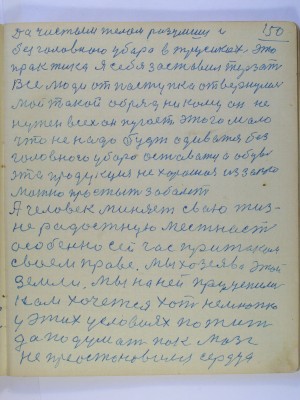 150
да чистым телом разумиш и
без головного убора в трусиках это
практика я себя заставил терзат
Все люди от паступка отвернулис
мой такой обряд никому он не
нужен всех он пугает этого мало
что не надо будт одиватся без
головного убора остават и обуви
эта продукция не хорошая из за ние
можно простыт заболет
А человек миняет сваю жиз-
нерадостную местност
особенно сей час при таком
своем праве. Мы хозяева этой
земли, мы на ней приучени
нам хочется хотя немножко
у этих условиях пожит
да подумат как мозг
не преостоновилис сердця